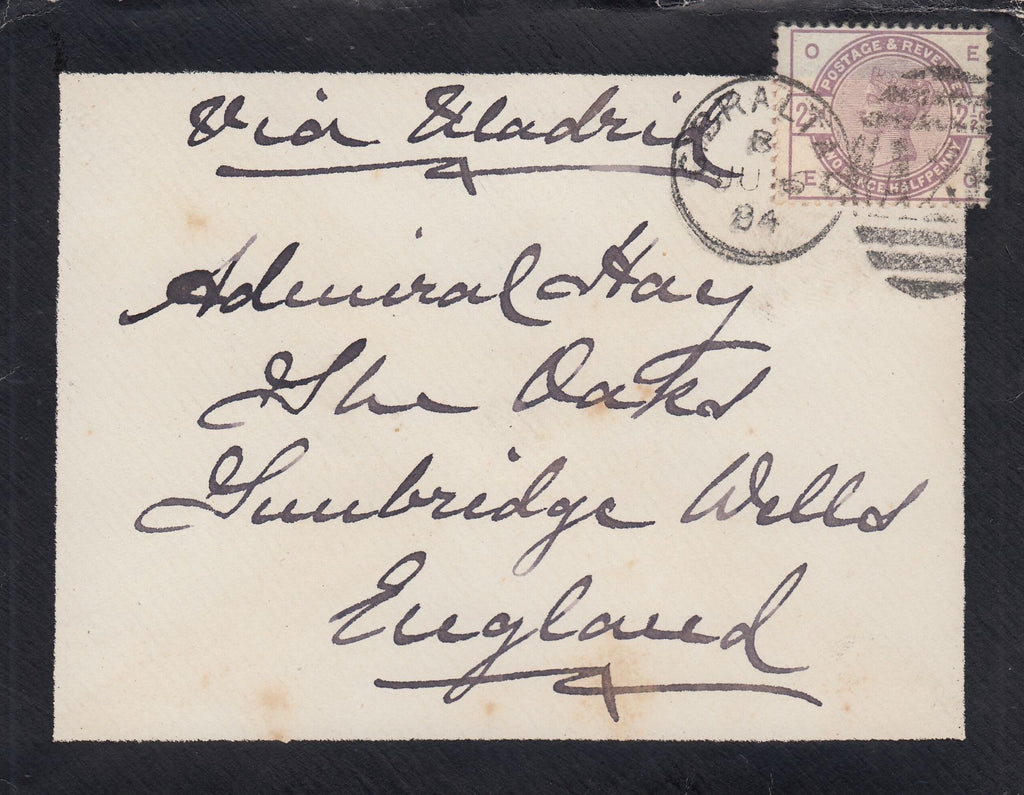 Via Madrid
Admiral Hay
The Oaks
Tunbridge Wells
England
O E
POSTAGE & REVE
2½ 2½
TWO PENCE HALFPENNY
E O
GIBRALTAR
B
JU 5
84